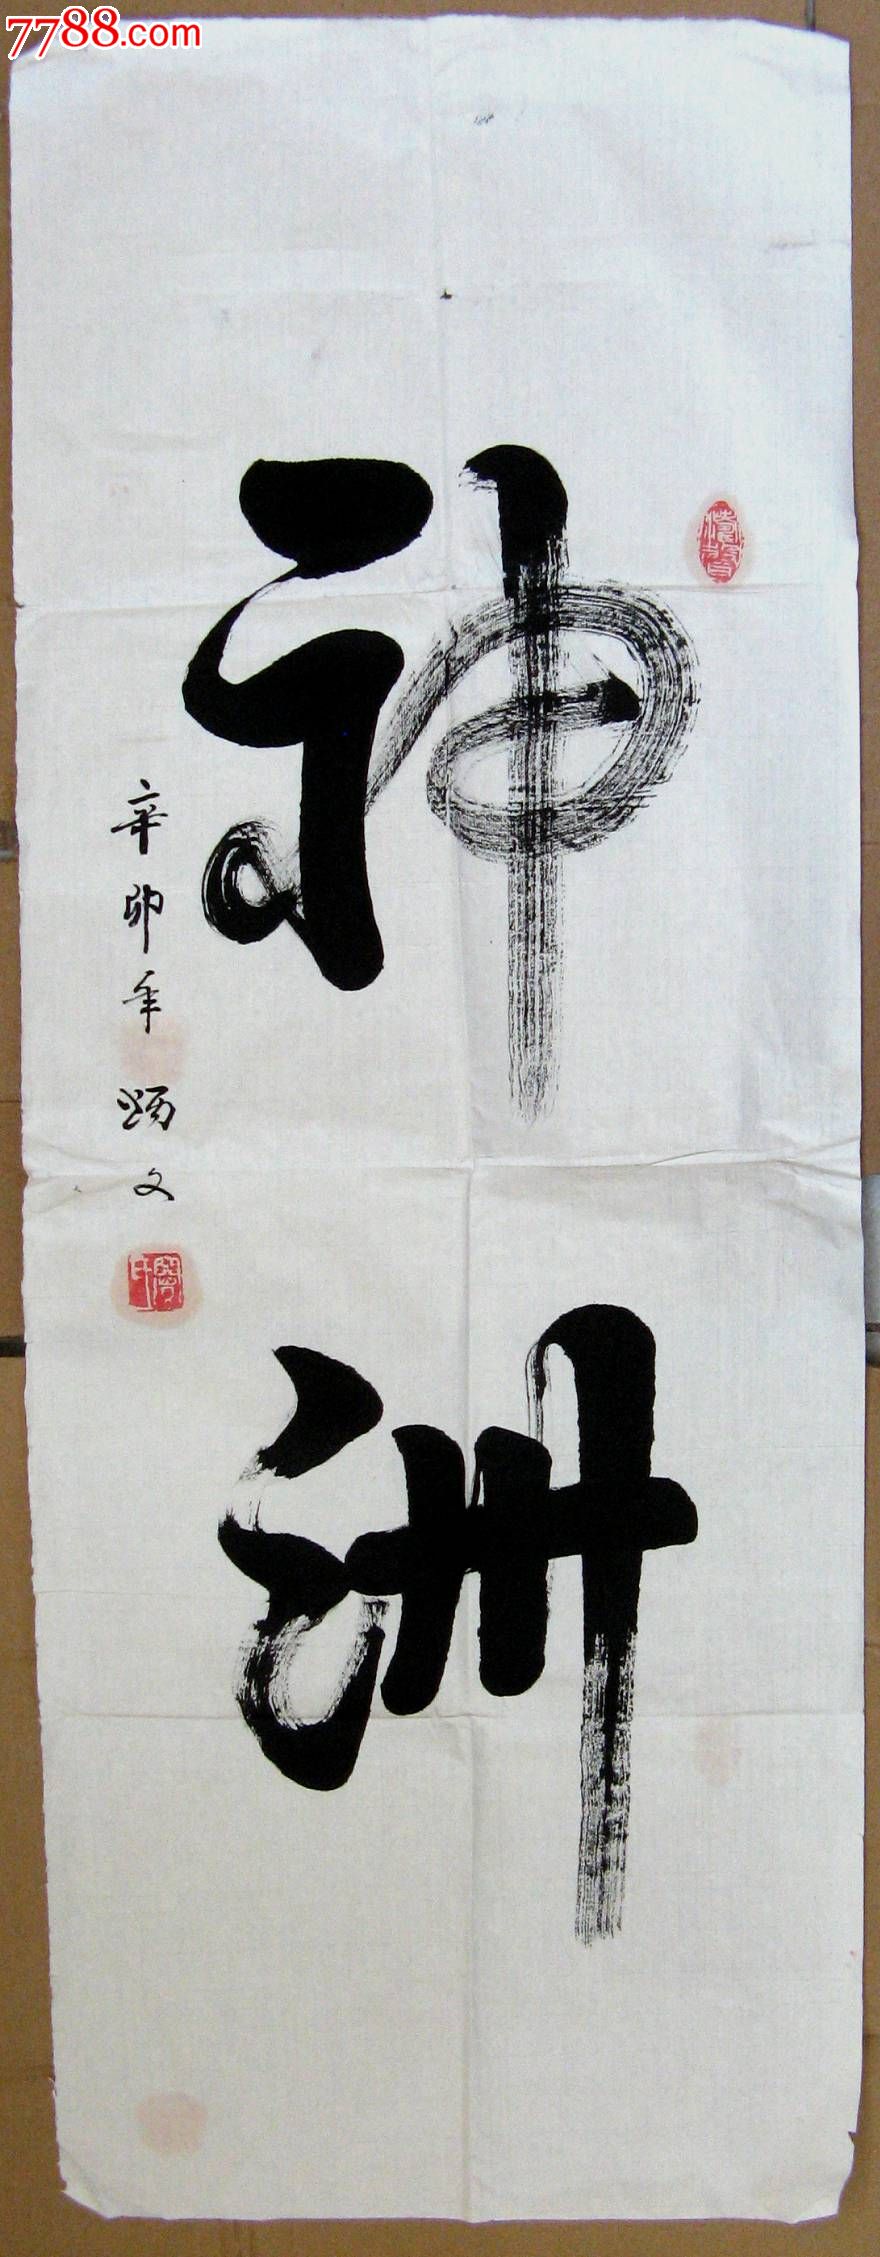 7788.com
神洲
辛卯年 炳文